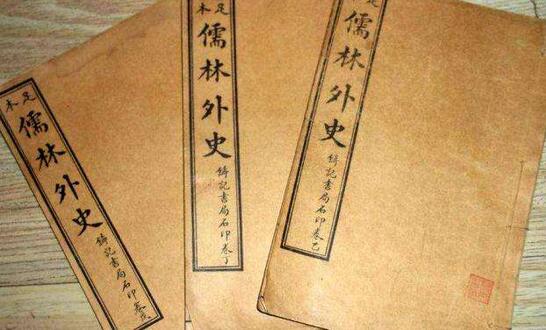 足本
儒林外史
鑄記書局石印卷戊
足本
儒林外史
鑄記書局石印卷丁
足
儒林外史
鑄記書局石印卷己